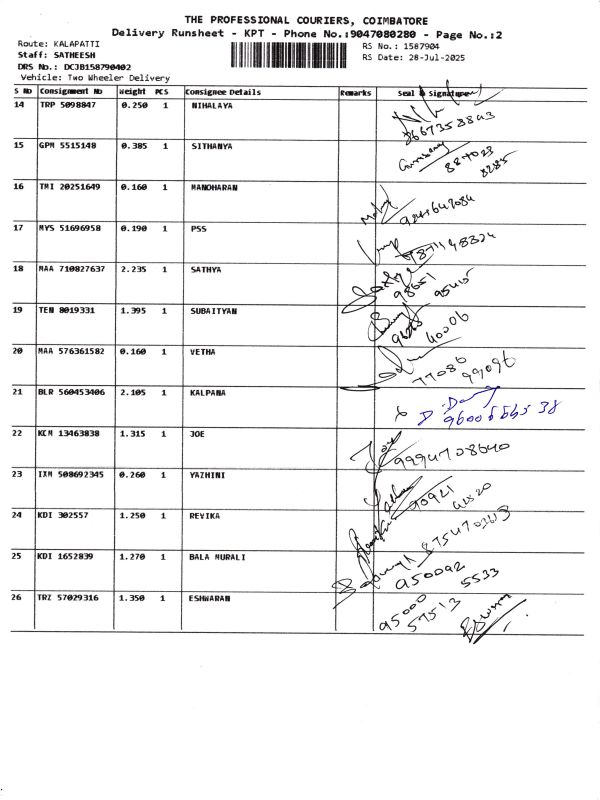 THE PROFESSIONAL COURIERS, COIMBATORE
Delivery Runsheet - KPT - Phone No.:9047080280 - Page No.:2
Route: KALAPATTI
RS No.: 1587904
Staff: SATHEESH
RS Date: 28-Jul-2025
DRS No.: DCJB158790402
Vehicle: Two Wheeler Delivery
S No Consignment No Weight PCS Consignee Details Remarks Seal & Signature
14 TRP 5098847 0.250 1 NIHALAYA
15 GPM 5515148 0.385 1 SITHANYA
887023
8285
16 TMI 20251649 0.160 1 MANOHARAN
17 MYS 51696958 0.190 1 PSS
18 MAA 710827637 2.235 1 SATHYA
98651
95415
19 TEN 8019331 1.395 1 SUBAITYAN
40006
20 MAA 576361582 0.160 1 VETHA
77086
99096
21 BLR 560453406 2.105 1 KALPANA
22 KCM 13463838 1.315 1 JOE
Joe
9994708640
23 IXM 508692345 0.260 1 YAZHINI
90921
24 KDI 302557 1.250 1 REVIKA
25 KDI 1652839 1.270 1 BALA MURALI
950092
5533
26 TRZ 57029316 1.350 1 ESHWARAN
95000
57513